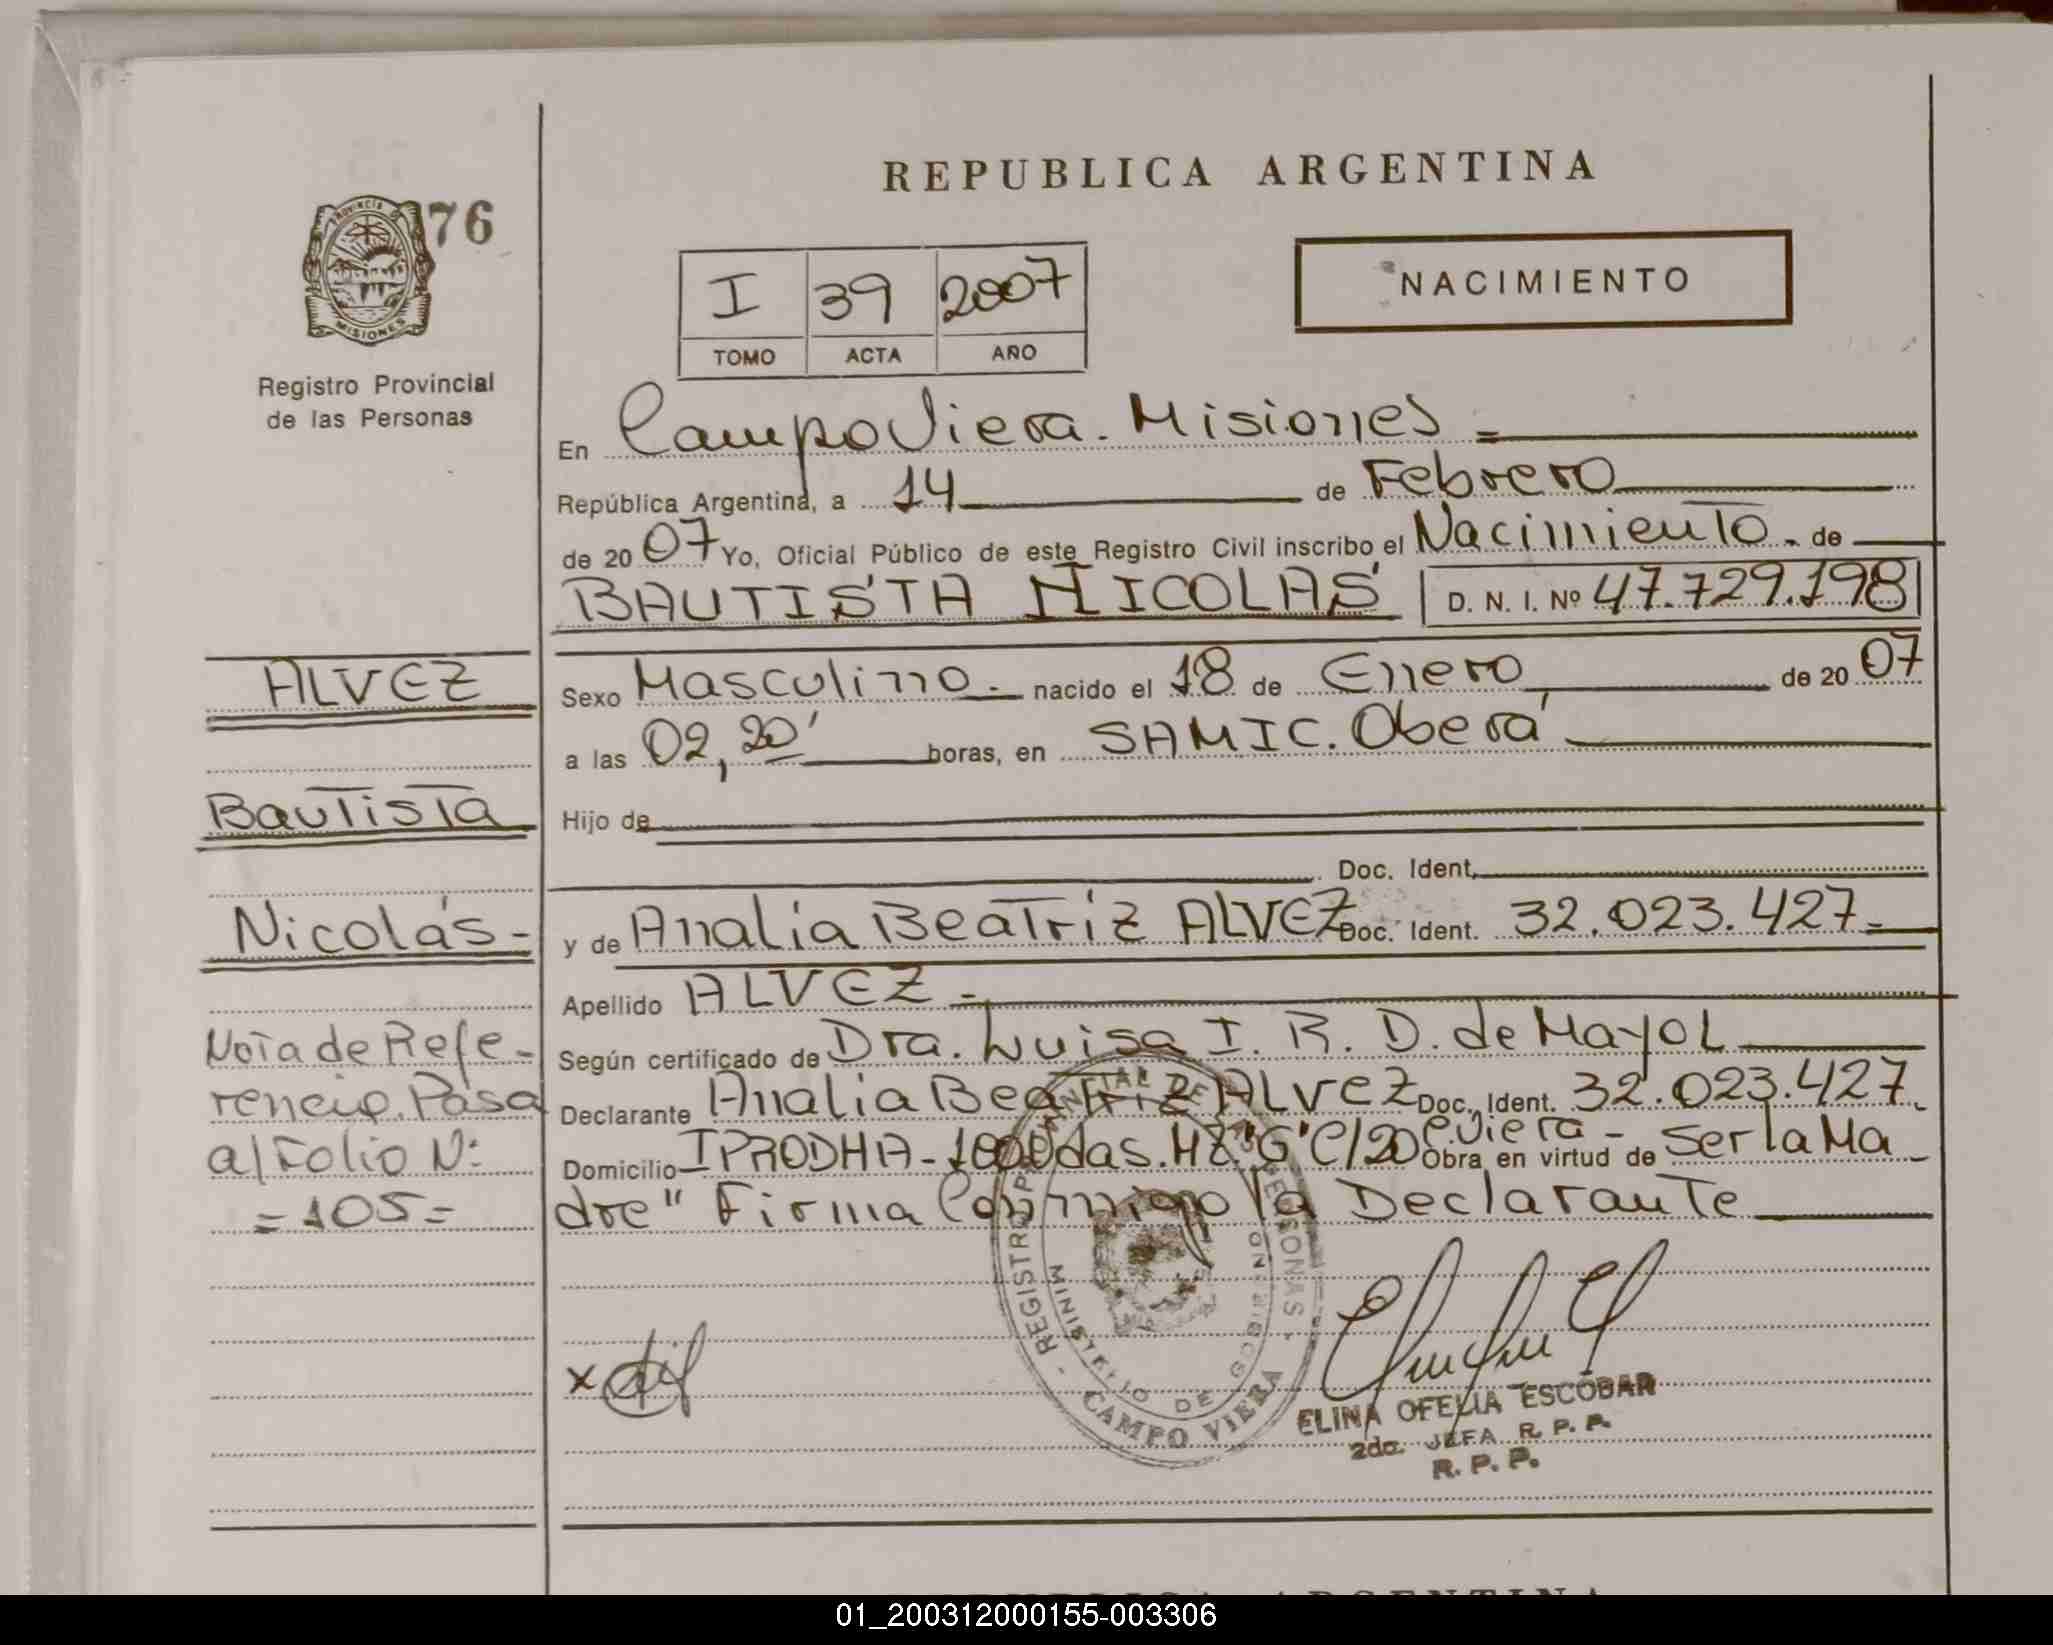 REPUBLICA ARGENTINA
76
PROVINCIA DE
MISIONES
Registro Provincial
de las Personas
I 39 2007
TOMO ACTA AÑO
NACIMIENTO
En Campo Viera. Misiones =
República Argentina, a 14 de Febrero
de 2007 Yo, Oficial Público de este Registro Civil inscribo el Nacimiento. de
BAUTISTA NICOLAS D. N. I. Nº 47.729.198
ALVEZ
Bautista
Nicolás-
Nota de Refe-
rencia. Pasa
al Folio Nº
=105=
Sexo Masculino. nacido el 18 de Enero de 2007
a las 02,20' horas, en SAMIC. Oberá
Hijo de
Doc. Ident.
y de Analía Beatriz ALVEZ Doc. Ident. 32.023.427=
Apellido ALVEZ -
Según certificado de Dra. Luisa I. R. D. de Mayol
Declarante Analia Beatriz ALVEZ Doc. Ident. 32.023.427
Domicilio IPRODHA- 100Vdas. MZ."G" C/20 C. Viera - Obra en virtud de Ser la Ma
dre" Firma Conmigo la Declarante
REGISTRO PROVINCIAL DE LAS PERSONAS
MINISTERIO DE GOBIERNO
CAMPO VIERA
x
ELINA OFELIA ESCOBAR
2da. JEFA R. P. P.
R. P. P.
REPUBLICA ARGENTINA
01_200312000155-003306